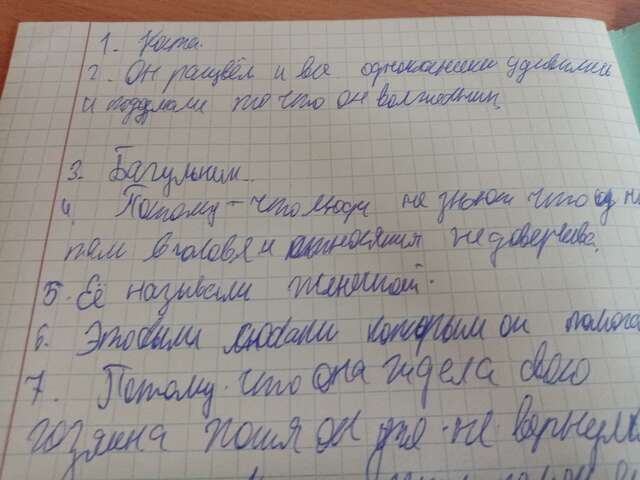 1. Коста.
2. Он рацвёл и все однокласники удивились
и подумали то что он волшебник
3. Багульник.
4. Потому-что люди не знают что у не
там в голове и относятся недоверчиво.
5. Её называли Женечкой.
6. Это были люди которым он помога
7. Потому что она ждела свого
хозяина хотя он уже не вернулс